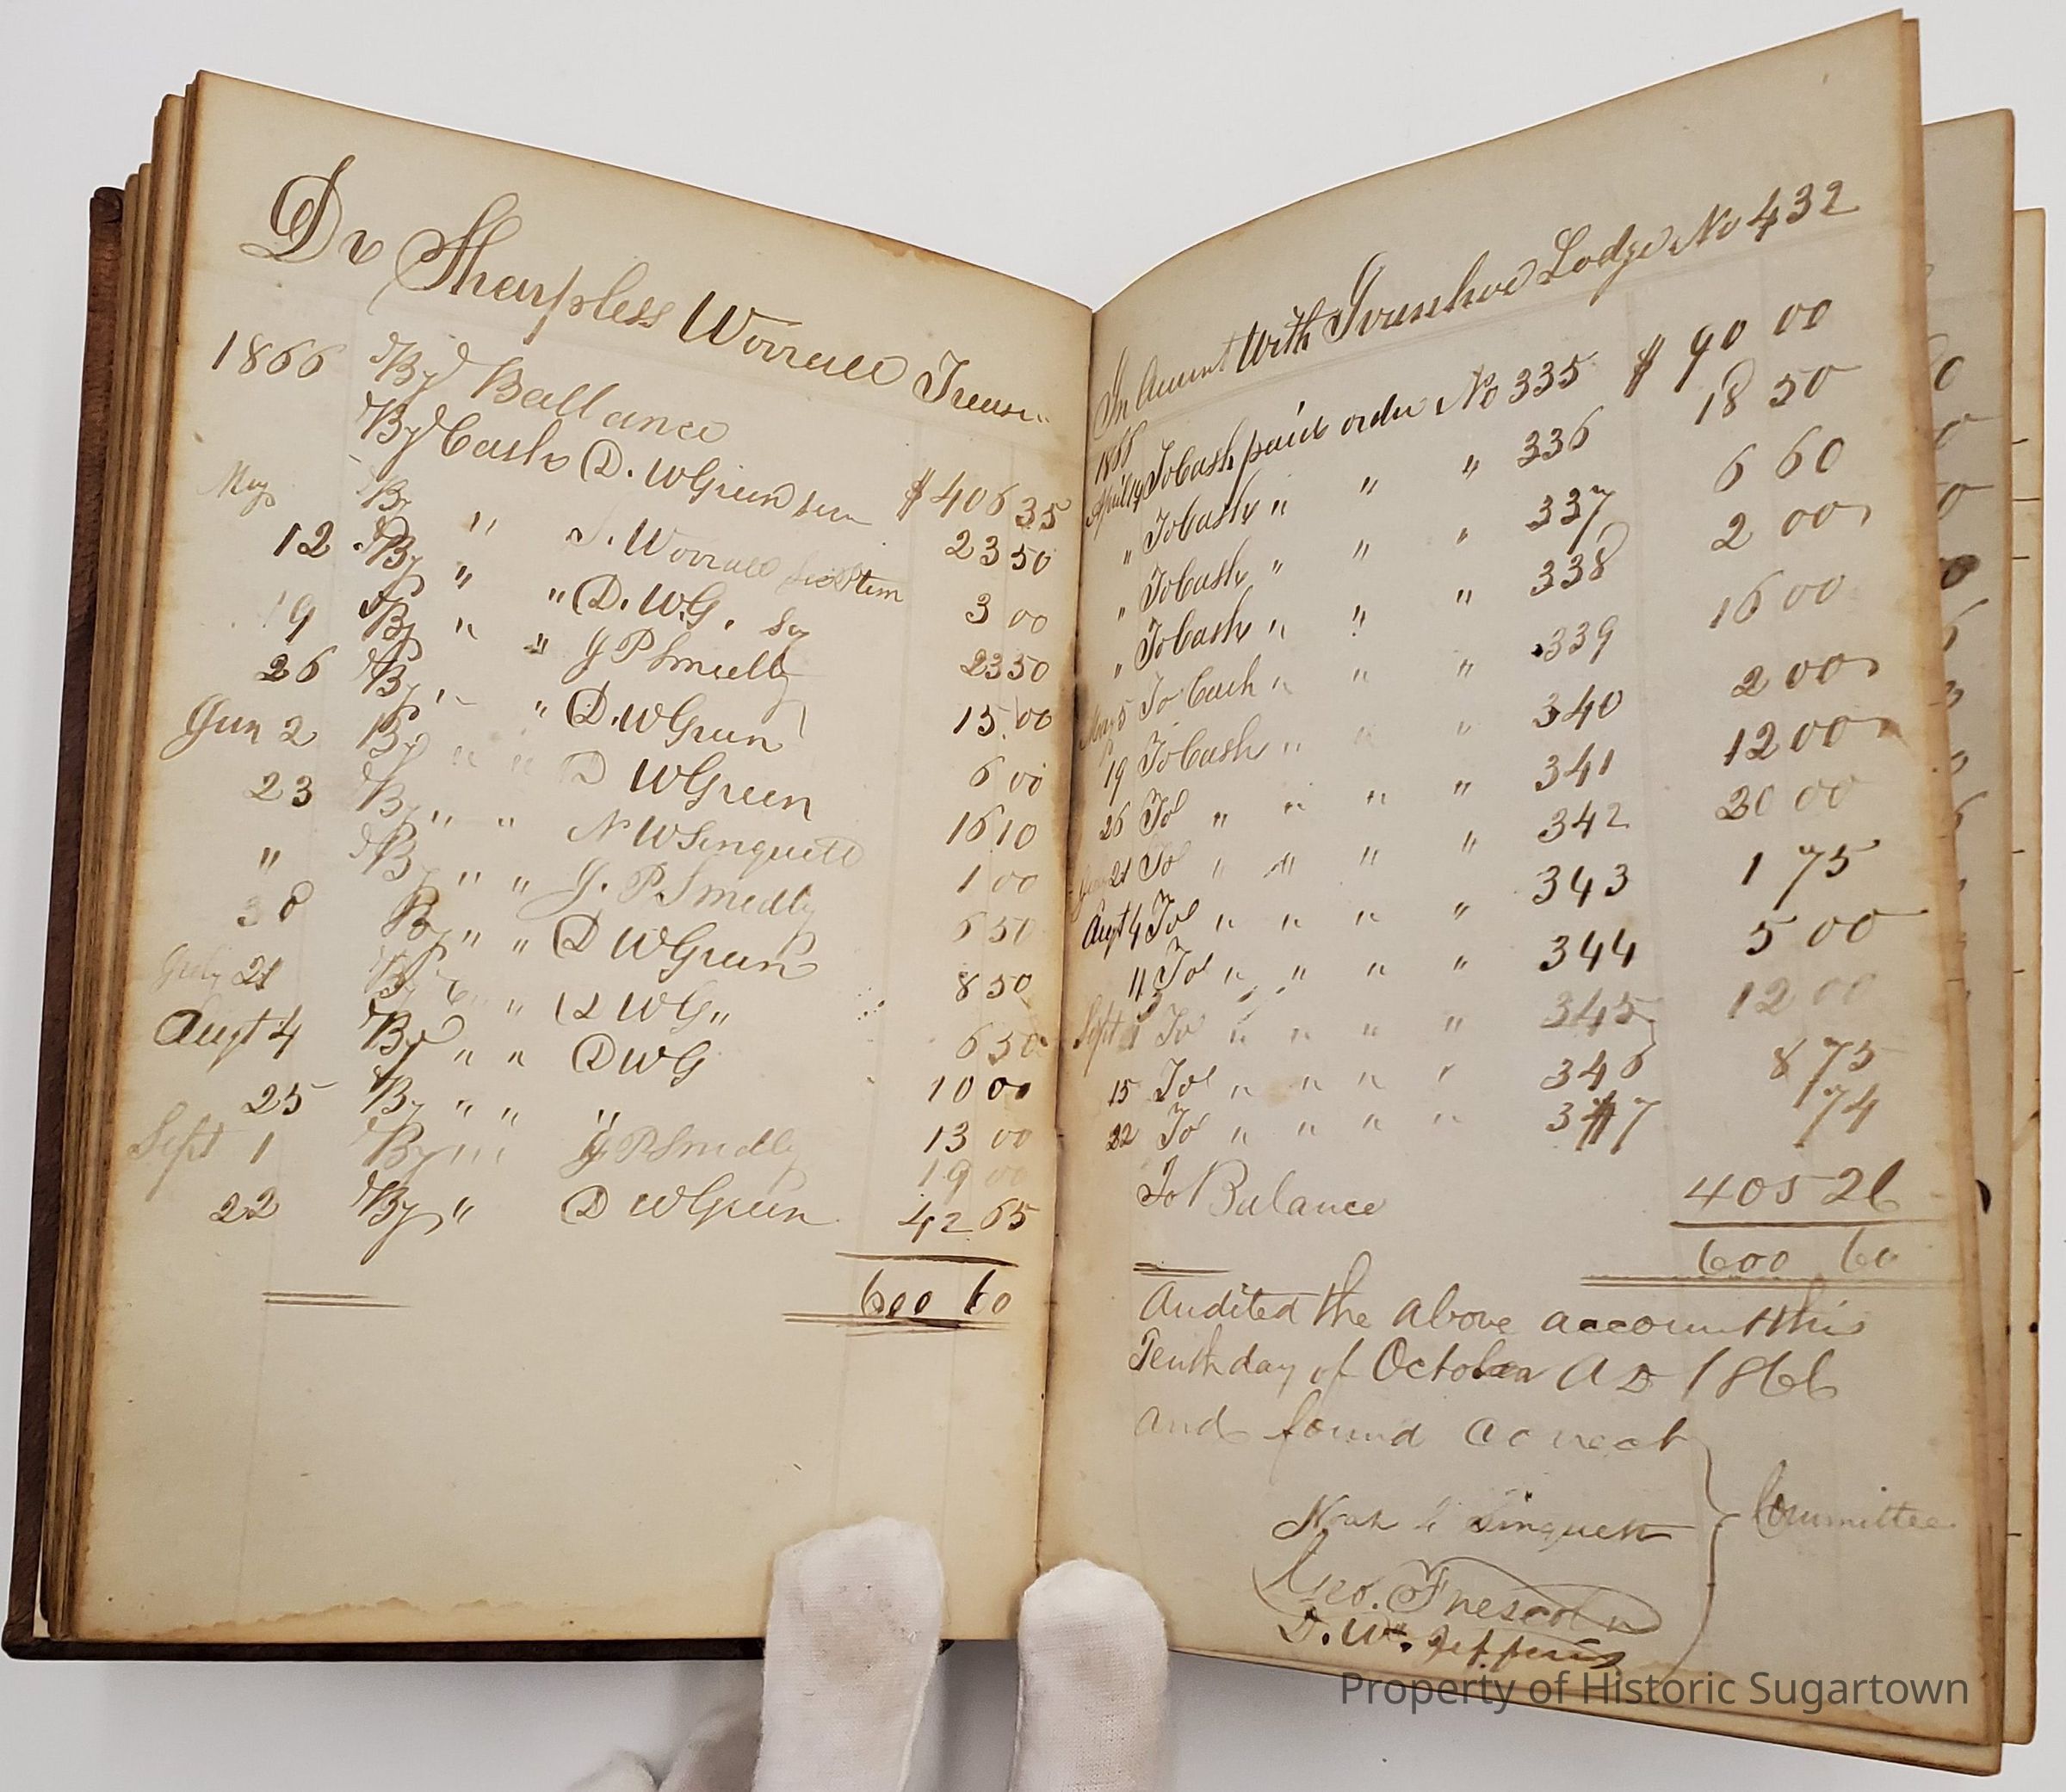 Dr Sharpless Worrall Treasr
1866 By Ballance $ 406 35
By Cash D. W Green 23 50
May By " S. Worrall Protem 3 00
12 By " " D. W.G. Sey 23 50
19 By " " J P Smedly 15.00
26 By " " D. W Green 6 00
Jun 2 By " " D W Green 16 10
23 By " " N W Sinquett 1 00
" By " " J. P. Smedly 6 50
30 By " " D W Green 8 50
July 21 By " " D W G " 6 50
Augt 4 By " " D W G 10 00
25 By " " " 13 00
Sept 1 By " " J P Smedly 19 00
22 By " D W Green 42 65
600 60
In Acount With Ivanhoe Lodge No 432
1866
April 14 To Cash paid order No 335 $ 90 00
" To Cash " " " 336 18 50
" To Cash " " " 337 6 60
" To Cash " " " 338 2 00
May 5 To Cash " " " 339 16 00
19 To Cash " " " 340 2 00
26 To " " " " 341 12 00
21 To " " " " 342 20 00
Augt 4 To " " " " 343 1 75
11 To " " " " 344 5 00
Sept 1 To " " " " 345 12 00
15 To " " " " 346 8 75
22 To " " " " 347 1 74
To Balance 405 26
600 60
Audited the above account this
Tenth day of October A D 1866
and found correct
Noah Sinquett
Geo. F
D. W. Jefferis
Committee
Property of Historic Sugartown